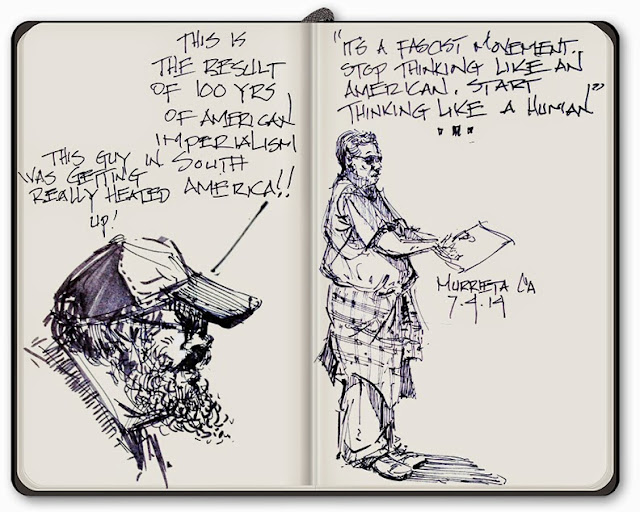 THIS IS
THE RESULT
OF 100 YRS
OF AMERICAN
IMPERIALISM
IN SOUTH
AMERICA!!
THIS GUY
WAS GETTING
REALLY HEATED
UP!
"IT'S A FASCIST MOVEMENT.
STOP THINKING LIKE AN
AMERICAN. START
THINKING LIKE A HUMAN"
MURRIETA CA
7-4-14